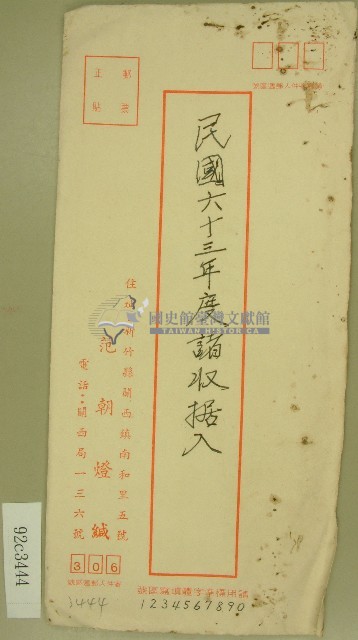 正貼
郵票
民國六十三年度諸收据入
國史館臺灣文獻館
TAIWAN HISTORICA
住址新竹縣關西鎮南和里五號
范朝燈緘
電話：關西局一三六號
306
1234567890
3444
92c3444